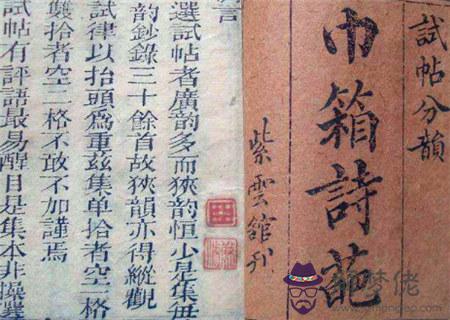 試帖分韻
巾箱詩葩
紫雲館刊
言
選試帖者廣韵多而狹韵恒少是集每
韵鈔錄三十餘首故狹韵亦得縱觀
試律以抬頭爲重茲集单抬者空一格
雙抬者空二格不敢不加謹焉
試帖有評語最易醒目是集本非操選